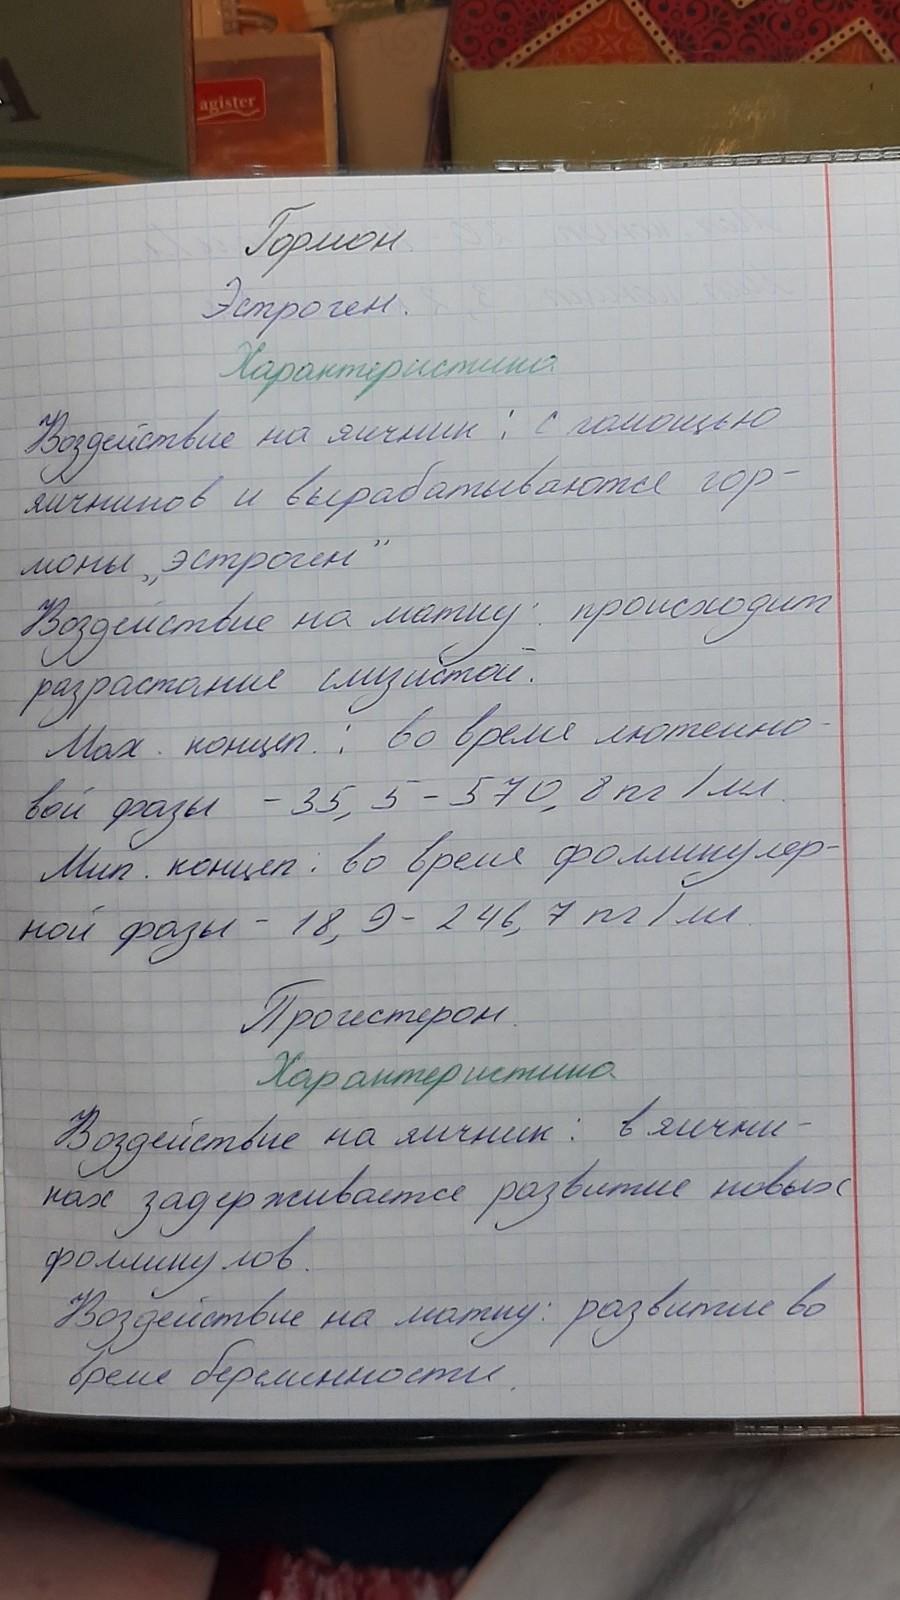 agister
Гормон
Эстроген.
Характеристика
Воздействие на яичник: с помощью
яичников и вырабатываются гор-
моны „эстроген”
Воздействие на матку: происходит
разрастание слизистой.
Мах. концеп.: во время лютеино-
вой фазы - 35,5 - 570,8 пг/мл.
Мип. концеп: во время фолликуляр-
ной фазы - 18,9 - 246,7 пг/мл.
Прогестерон.
Характеристика
Воздействие на яичник: в яични-
ках задерживается развитие новых
фолликулов.
Воздействие на матку: развитие во
время беременности.